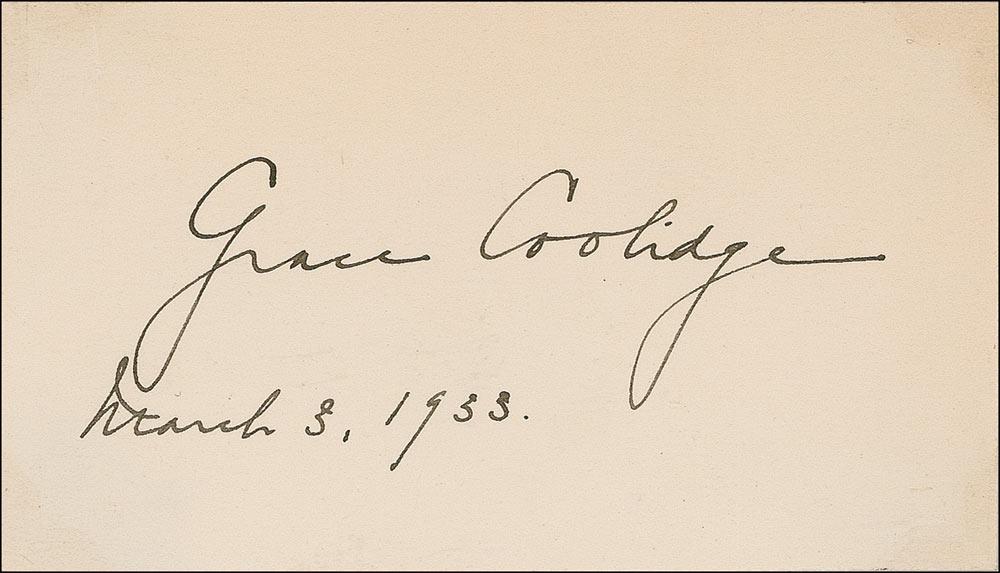 Grace Coolidge
March 3, 1933.